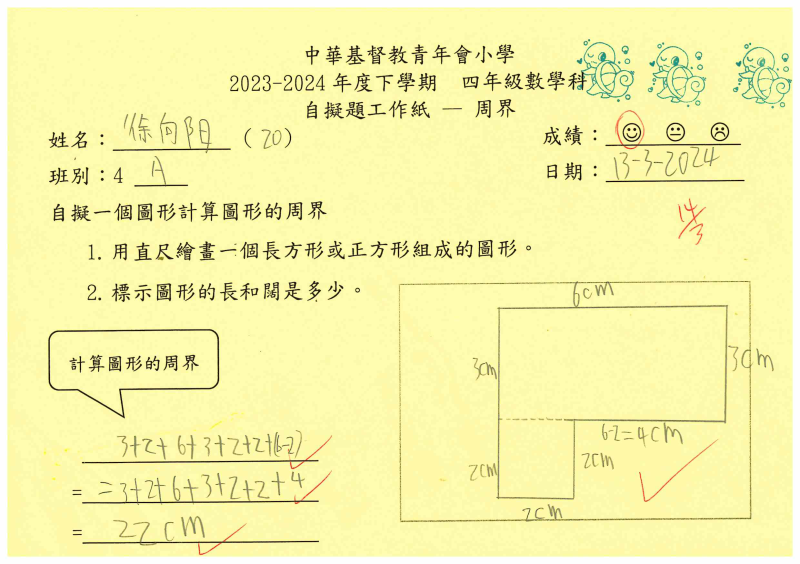 中華基督教青年會小學
2023-2024 年度下學期 四年級數學科
自擬題工作紙 — 周界
姓名：徐向陽 （20） 成績：
班別：4 A 日期：13-3-2024
14/3
自擬一個圖形計算圖形的周界
1. 用直尺繪畫一個長方形或正方形組成的圖形。
2. 標示圖形的長和闊是多少。
6cm
3cm
3cm
6-2=4cm
2cm
2cm
2cm
計算圖形的周界
3+2+6+3+2+2+(6-2)
= =3+2+6+3+2+2+4
= 22cm